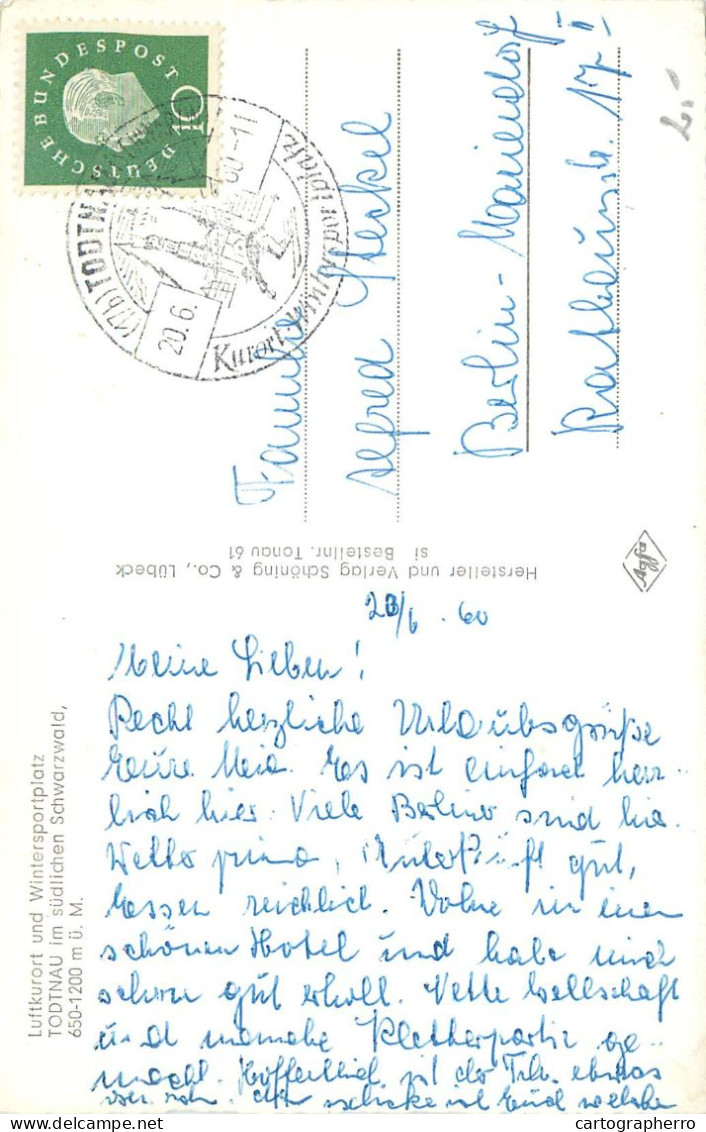 DEUTSCHE BUNDESPOST
10
(17b) TODTNAU
20.6. 60-11
Kurort-Wintersportplatz
2,-
Familie
Alfred Steckel
Berlin-Mariendorf
Rathausstr. 17 II
Hersteller und Verlag Schöning & Co., Lübeck
si Bestellnr. Tonau 61
Agfa
Luftkurort und Wintersportplatz
TODTNAU im südlichen Schwarzwald,
650-1200 m ü. M.
20/6. 60
Meine Lieben!
Recht herzliche Urlaubsgrüße
Eure Mia. Es ist einfach herr-
lich hier. Viele Berliner sind hier.
Wetter prima, Unterkunft gut,
Essen reichlich. Wohne in einem
schönen Hotel und habe mich
schon gut erholt. Nette Gesellschaft
und manche Kletterpartie ge-
macht. Hoffentlich ist der etwas
schicke ich Euch welche
cartographerro.com